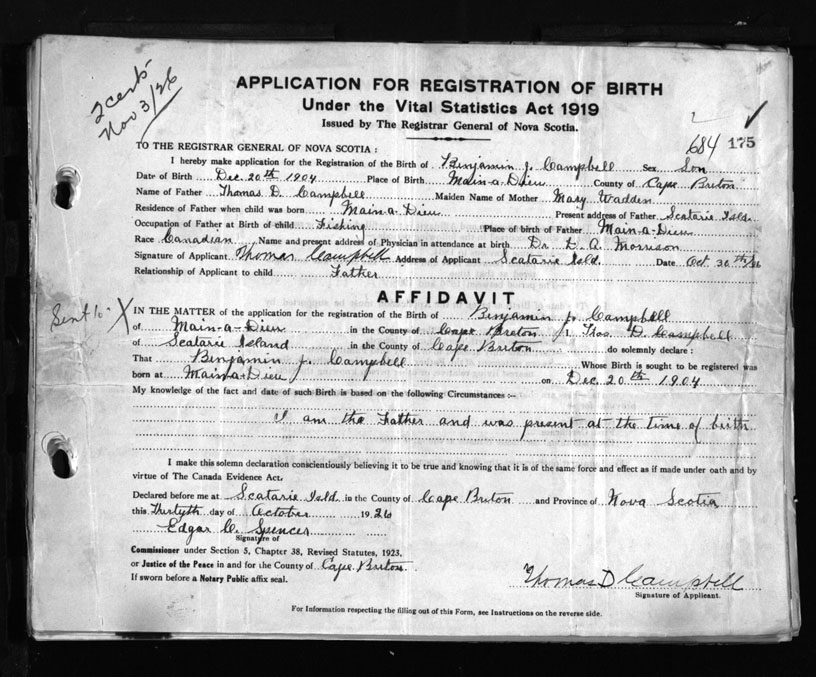 2 certs
Nov 3/26
APPLICATION FOR REGISTRATION OF BIRTH
Under the Vital Statistics Act 1919
Issued by The Registrar General of Nova Scotia.
684 175
TO THE REGISTRAR GENERAL OF NOVA SCOTIA :
I hereby make application for the Registration of the Birth of Benjamin J. Campbell Sex Son
Date of Birth Dec. 20th 1904 Place of Birth Main-a-Dieu County of Cape Breton
Name of Father Thomas D. Campbell Maiden Name of Mother Mary Wadden
Residence of Father when child was born Main-a-Dieu Present address of Father Scatarie Isld.
Occupation of Father at Birth of child Fishing Place of birth of Father Main-a-Dieu
Race Canadian Name and present address of Physician in attendance at birth Dr. D. A. Morrison
Signature of Applicant Thomas Campbell Address of Applicant Scatarie Isld. Date Oct 30th/26
Relationship of Applicant to child Father
AFFIDAVIT
Sent to X
IN THE MATTER of the application for the registration of the Birth of Benjamin J. Campbell
of Main-a-Dieu in the County of Cape Breton I, Thos. D. Campbell
of Scatarie Island in the County of Cape Breton do solemnly declare :
That Benjamin J. Campbell Whose Birth is sought to be registered was
born at Main-a-Dieu on Dec. 20th 1904
My knowledge of the fact and date of such Birth is based on the following Circumstances :-
I am the Father and was present at the time of birth
I make this solemn declaration conscientiously believing it to be true and knowing that it is of the same force and effect as if made under oath and by
virtue of The Canada Evidence Act.
Declared before me at Scatarie Isld. in the County of Cape Breton and Province of Nova Scotia
this Thirtyth day of October 1926
Edgar C. Spencer
Signature of
Commissioner under Section 5, Chapter 38, Revised Statutes, 1923.
or Justice of the Peace in and for the County of Cape Breton
If sworn before a Notary Public affix seal.
Thomas D Campbell
Signature of Applicant.
For Information respecting the filling out of this Form, see Instructions on the reverse side.